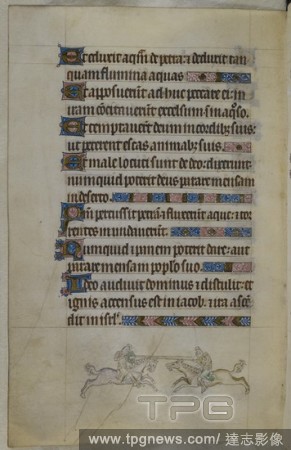 Et eduxit aqm de petra: et deduxit tan
quam flumina aquas
Et apposuerunt ad huc peccare ei: in
iram concitaverunt excelsum in aqoso.
Et temptaverunt deum in cordibus suis:
ut peterent escas animabus suis.
Et male locuti sunt de deo: dixerunt
numquid poterit deus parare mensam
in deserto.
Qm percussit petram et fluxerunt aque: et tor
rentes inundaverunt.
Numquid et panem poterit dare: aut
parare mensam poplo suo.
Ideo audivit dominus et distulit: et
ignis accensus est in iacob: et ira ascen
dit in isrl.
TPG
www.tpgnews.com / 達志影像